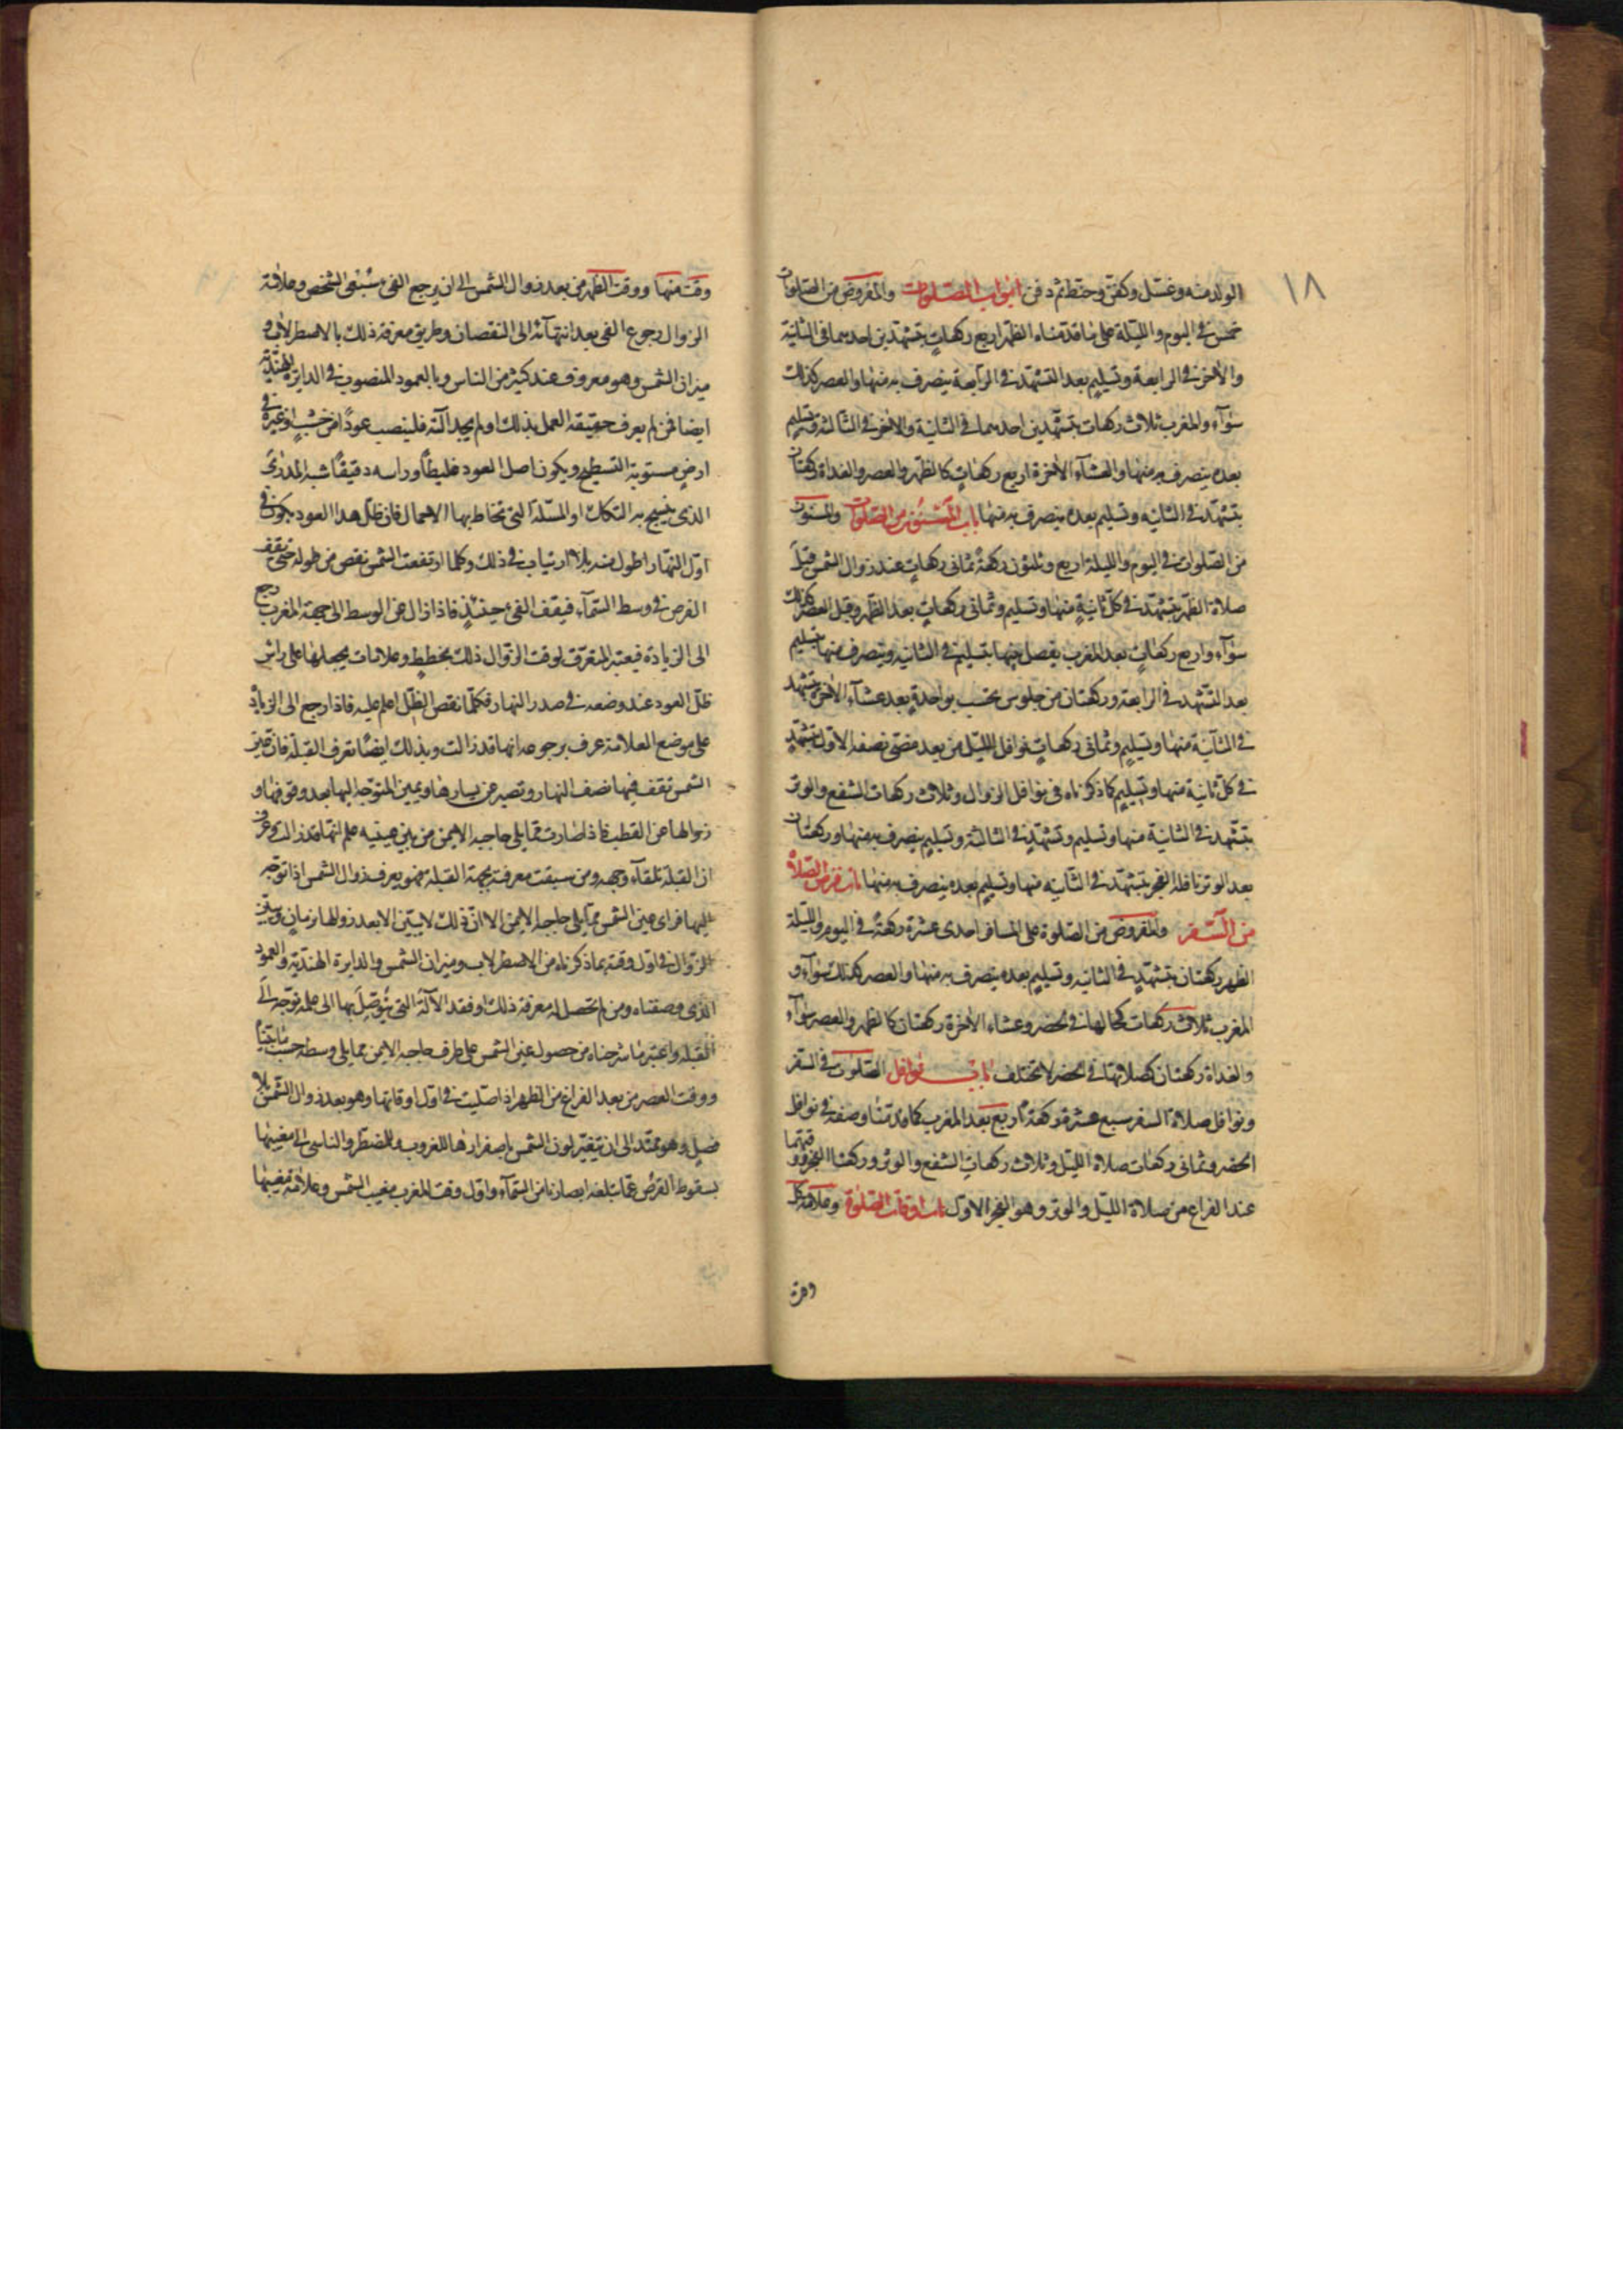 ١٨
الولد منه وغسّل وكفّن وحنّط ثم دفن ابواب الصّلوات والمفروض من الصّلوات
خمس في اليوم واللّيلة على ما قدّمناه الظّهر اربع ركعاتٍ بتشهّدين احدهما في الثانية
والآخر في الرابعة وتسليم بعد التشهّد في الرّابعة ينصرف به منها والعصر كذلك
سوآء والمغرب ثلاث ركعات بتشهّدين احدهما في الثانية والآخر في الثالثة وتسليم
بعده ينصرف به منها والعشآء الآخرة اربع ركعاتٍ كالظّهر والعصر والغداة ركعتان
بتشهّد في الثانيه وتسليم بعده ينصرف به منها باب المسنون من الصّلوات والمسنون
من الصّلوات في اليوم والليلة اربع وثلثون ركعةً ثماني ركعاتٍ عند زوال الشمس قبل
صلاة الظّهر بتشهّد في كلّ ثانيةٍ منها وتسليم وثماني ركعاتٍ بعد الظّهر وقبل العصر كذلك
سوآء واربع ركعاتٍ بعد المغرب يفصل بينها بتسليم في الثانيه وينصرف منها بتسليم
بعد التّشهد في الرابعة وركعتان من جلوس تحسب بواحدةٍ بعد عشآء الآخرة بتشهد
في الثّانية منها وتسليمٍ وثماني ركعاتٍ نوافل اللّيل من بعد مضىّ نصفه الاوّل بتشهّدٍ
في كلّ ثانية منها وتسليمٍ كما ذكرناه في نوافل الزوال وثلاث ركعات الشفع والوتر
بتشّهد في الثانية منها وتسليم وتشهّدٍ في الثالثة وتسليمٍ ينصرف به منها وركعتان
بعد الوتر نافلة الفجر بتشهّد في الثّانيه منها وتسليمٍ بعده ينصرف به منها باب فرض الصّلاة
من السّفر والمفروض من الصّلوة على المسافر احدى عشرة ركعةً في اليوم واللّيلة
الظهر ركعتان بتشهّدٍ في الثانيه وتسليمٍ بعده ينصرف به منها والعصر كذلك سوآءً و
المغرب ثلاث ركعات كحالها في الحضر وعشاء الآخرة ركعتان كالظهر والعصر سوآء
والغداة ركعتان كصلاتها في الحضر لا تختلف باب نوافل الصّلوت في السّفر
ونوافل صلاة السفر سبع عشرة ركعةً اربع بعد المغرب كما قدّمنا وصفه في نوافل
الحضر وثماني ركعات صلاة اللّيل وثلاث ركعات الشفع والوتر وركعتا الفجر ووقتهما
عند الفراغ من صلاة اللّيل والوتر وهو الفجر الاول باب اوقات الصّلوة وعلامة كل
وقت منها ووقت الظّهر من بعد زوال الشمس الى ان يرجع الفئ سُبْعَى الشخص وعلامة
الزوال رجوع الفى بعد انتهآئه الى النقصان وطريق معرفة ذلك بالاسطرلاب و
ميزان الشمس وهو معروف عند كثير من الناس وبالعمود المنصوب في الداير الهنديّة
ايضا فمن لم يعرف حقيقة العمل بذلك او لم يجد آلته فلينصب عوداً من خشبٍ او غيره في
ارضٍ مستوية التسطيح ويكون اصل العود غليظًا وراسه دقيقًا شبه المدرى
الذي ينسج به التكك او المسلّة التى تخاط بها الاحمال فان ظلّ هذا العود يكون في
اوّل النّهار اطول منه بلا ارتياب في ذلك وكلما ارتفعت الشمس نقص من طوله حتى يقف
القرص في وسط السّمآء فيقف الفئ حينئذٍ فاذا زال عن الوسط الى جهة المغرب رجع
الى الزيادة فيعتبر المتعرّف لوقت الزّوال ذلك بخططٍ وعلامات يجعلها على راس
ظلّ العود عند وضعه في صدر النهار فكلّما نقص الظلّ اعلم عليه فاذا رجع الى الزيادة
على موضع العلامة عرف برجوعه انها قد زالت وبذلك ايضًا تعرف القبلة فان عين
الشمس تقف فيها نصف النهار وتصير عن يسارها ويمين المتوجّه اليها بعد وقوفها و
زوالها عن القطب فاذا صارت ممّا يلى حاجبه الايمن من بين عينيه علم انّها قد زالت وعرف
ان القبلة تلقآء وجهه ومن سبقت معرفته بجهة القبلة فهو يعرف زوال الشمس اذا توجّه
اليها فراى عين الشمس ممّا يلى حاجبه الايمن الا انّ ذلك لا يتبيّن الا بعد زوالها بزمانٍ ويتبيّن
الزّوال في اوّل وقته بما ذكرناه من الاصطرلاب وميزان الشمس والدايرة الهنديّه والعمود
الّذى وصفناه ومن لم تحصل له معرفة ذلك او فقد الآلة التى يُتوصّل بها الى علمه توجّه الى
القبلة واعتبر ما شرحناه من حصول عين الشمس على طرف حاجبه الايمن ممّا يلى وسطه حسب ما بيّناه
ووقت العصر من بعد الفراغ من الظهر اذا صلّيت في اوّل اوقاتها وهو بعد زوال الشمس بلا
فصلٍ وهو ممتد الى ان يتغيّر لون الشمس باصفرارها للغروب وللمضطرّ والناسى الى مغيبها
بسقوط القرص عمّا تبلغه ابصارنا من السّمآء واوّل وقت المغرب مغيب الشمس وعلامة مغيبها